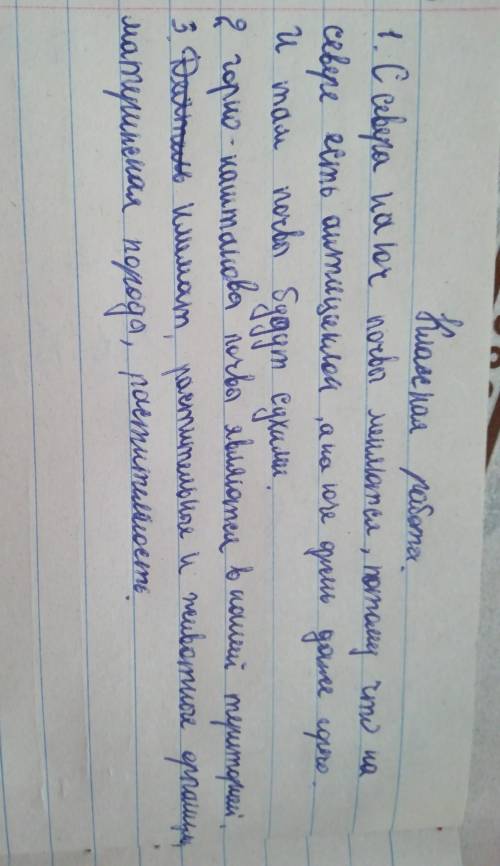 Класная работа.
1. С севера на юг почвы меняются, потому что на
севере есть антициклон, а на юге даже
И там почвы будут сухими.
2 горно-каштанова почвы являются в нашей територией.
3. климат, растительные и животные организм,
материнская порода, растительность.